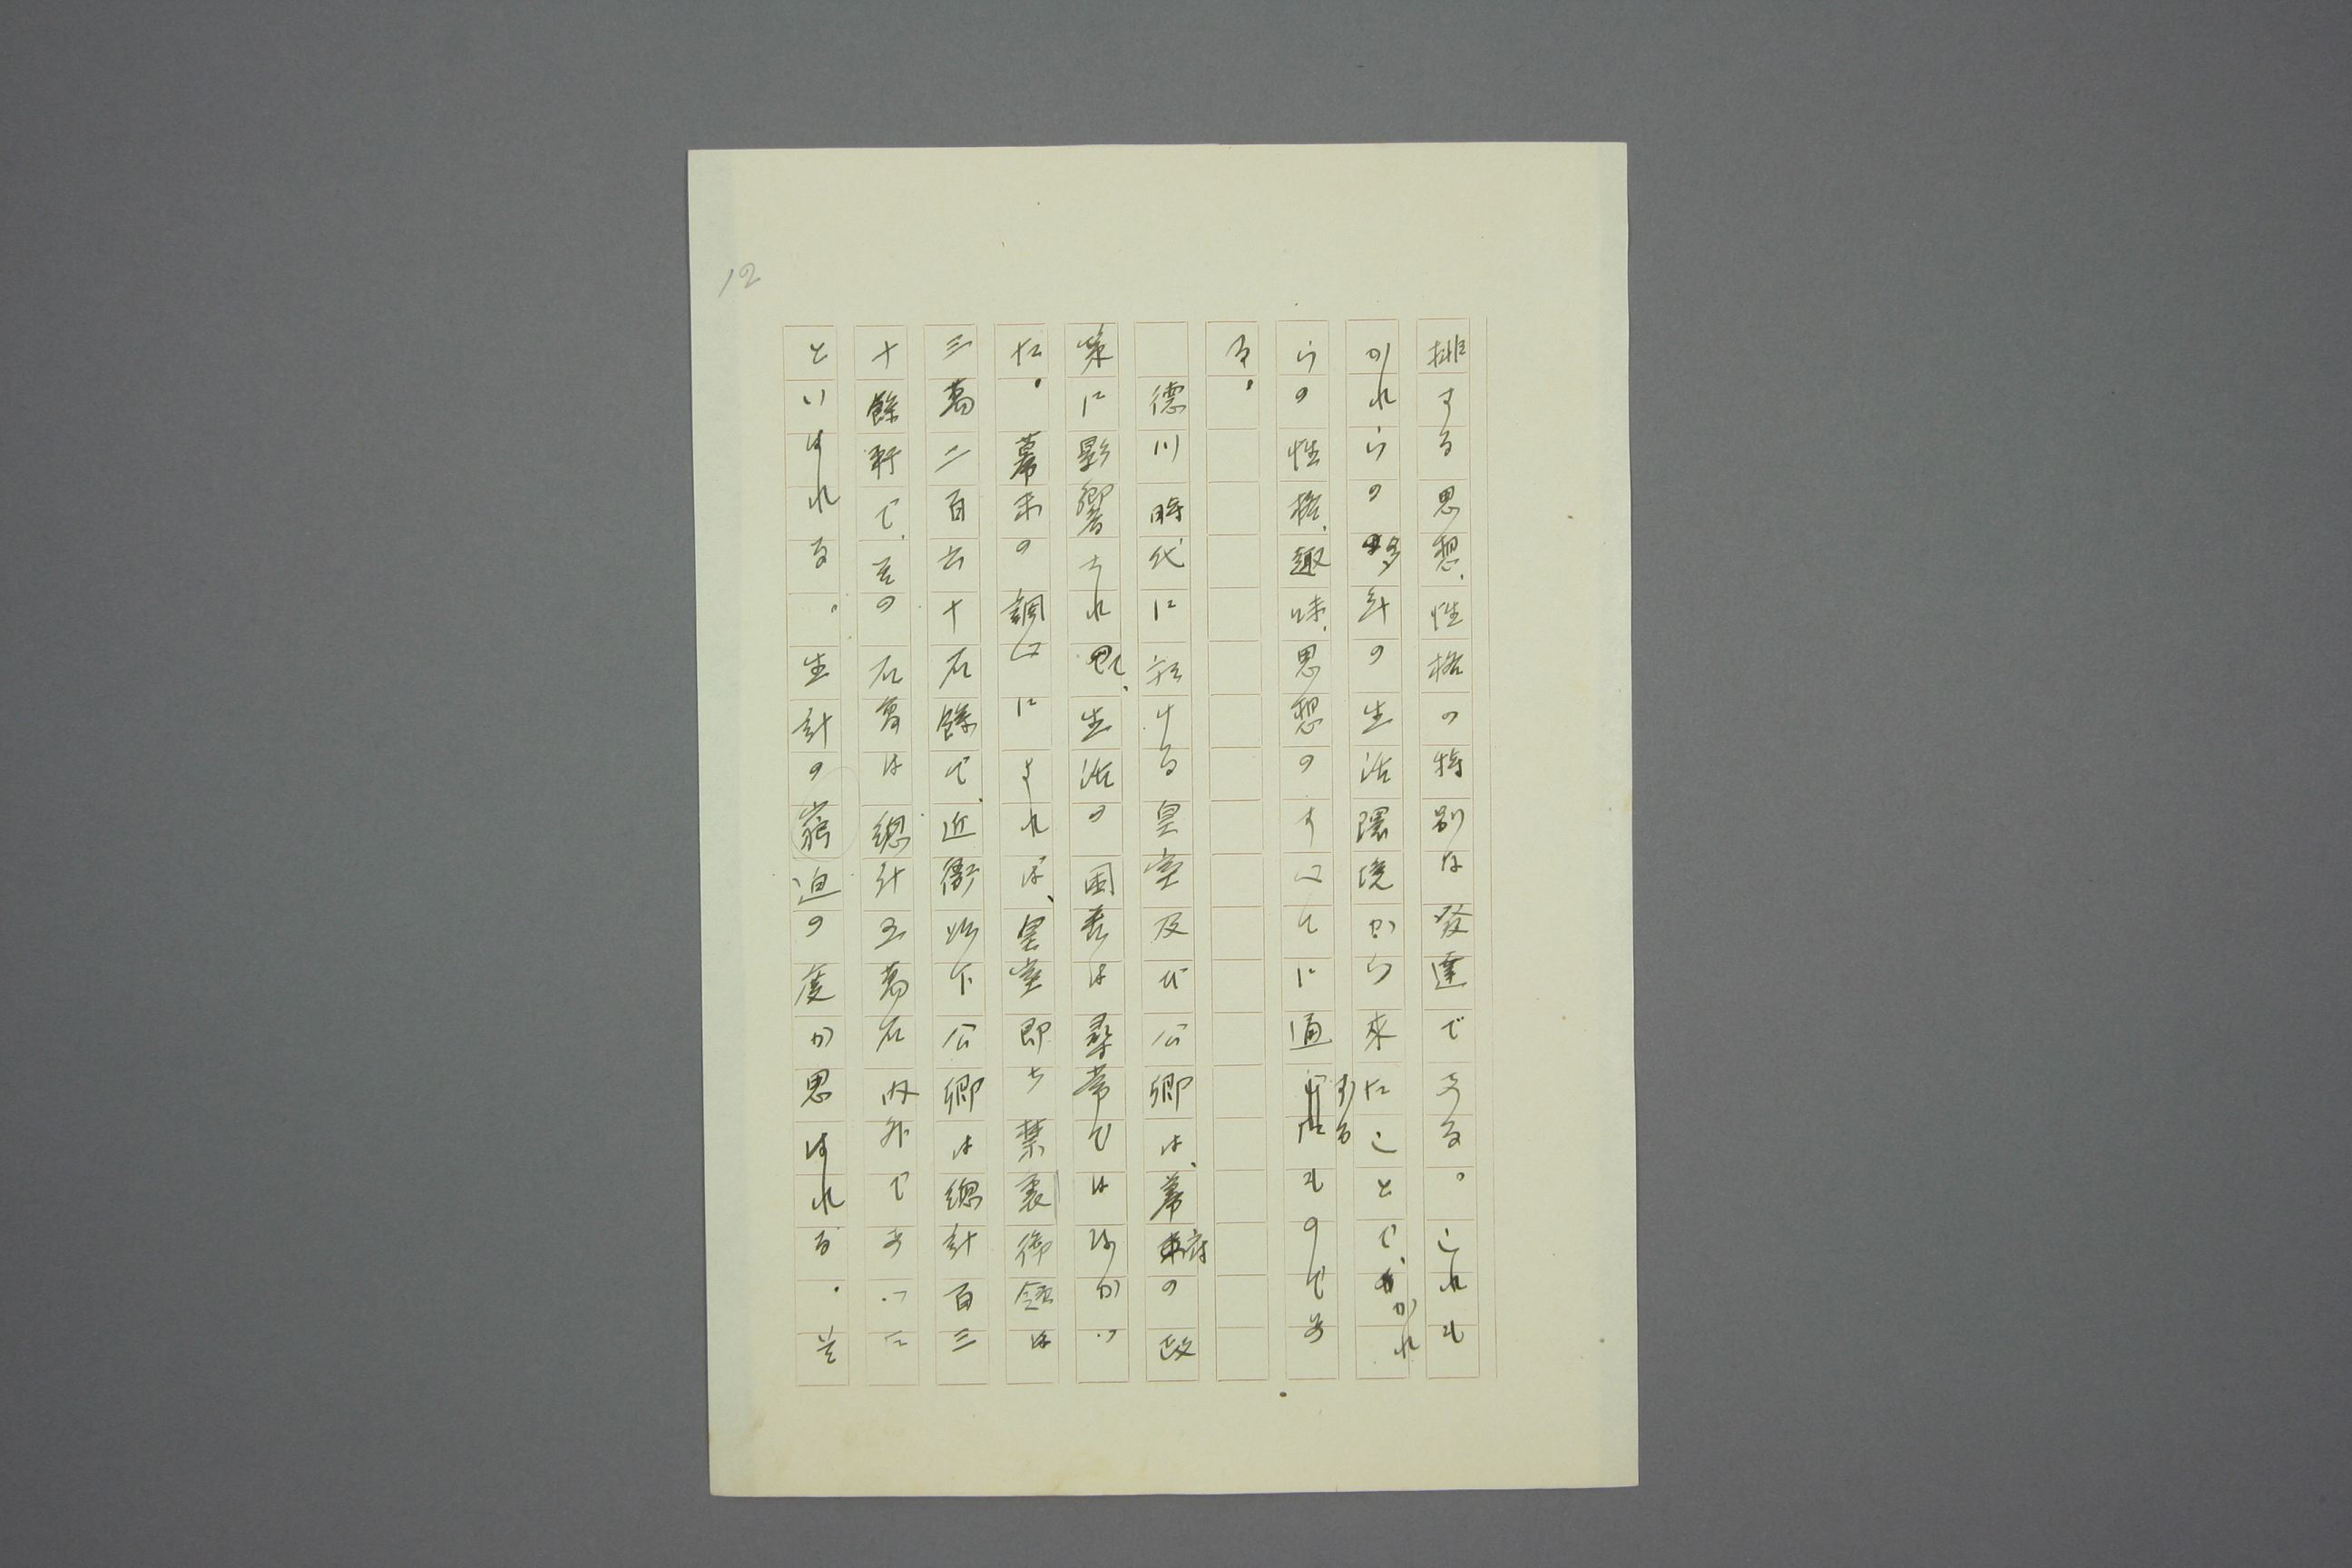 12
排する思想、性格の特別な發達である。これも
かれらの多年の生活環境から來たことで、かれ
らの性格、趣味、思想のすべてに通するものであ
る。
德川時代に於ける皇室及び公卿は、幕府の政
策に影響されて、生活の困窮は尋常ではなかつ
た。幕末の調べによれば、皇室即ち禁裏御領は
三萬二百六十石餘で、近衞以下公卿は總計百三
十餘軒で、その石高は總計五萬石内外であつた
といはれる。生計の窮迫の度が思はれる。並